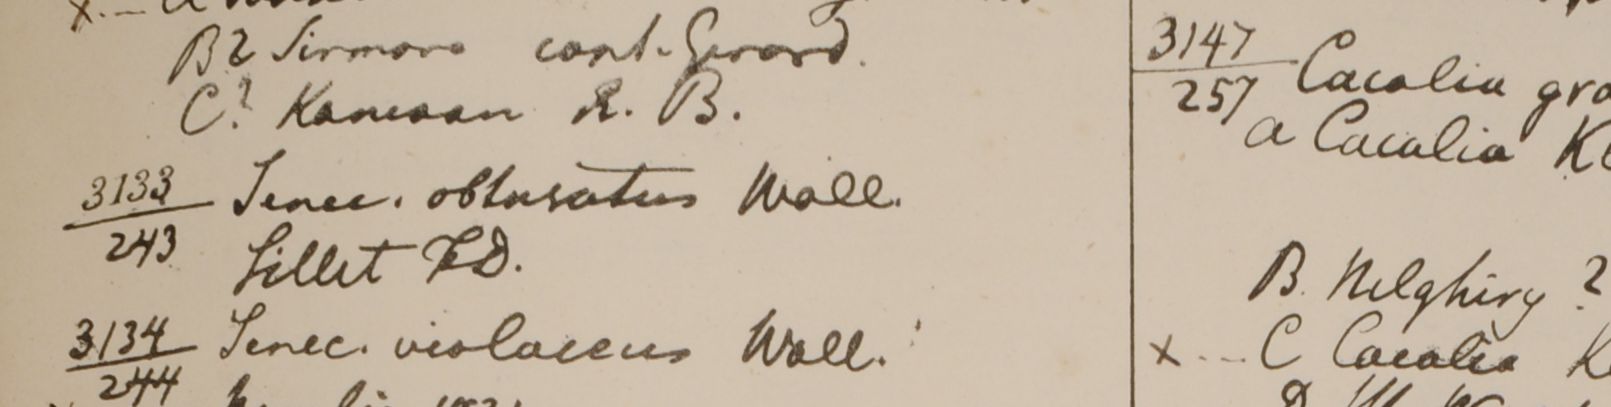 B? Sirmore cont. Gerard.
C? Kamoan R. B.
3133
243
Senec. obtusatus Wall.
Sillet F.D.
3134
244
Senec. violaceus Wall.
3147
257
Cacalia gra
a Cacalia K
B. Nilghiry ?
x C Cacalia K